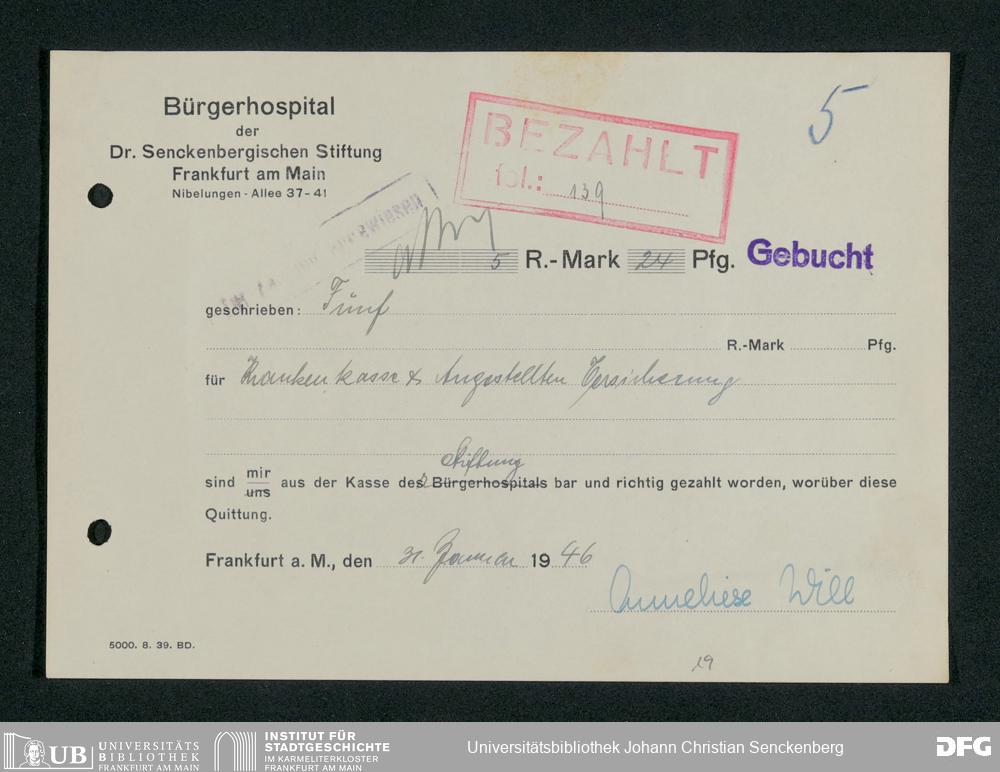 Bürgerhospital
der
Dr. Senckenbergischen Stiftung
Frankfurt am Main
Nibelungen - Allee 37-41
5
BEZAHLT
fol.: 139
5 R.-Mark 24 Pfg. Gebucht
geschrieben: Fünf
R.-Mark Pfg.
für Krankenkasse & Angestellten Versicherung
Stiftung
sind mir/uns aus der Kasse des Bürgerhospitals bar und richtig gezahlt worden, worüber diese
Quittung.
Frankfurt a. M., den 31. Januar 1946
Anneliese Will
5000. 8. 39. BD.
19
UB UNIVERSITÄTS
BIBLIOTHEK
FRANKFURT AM MAIN
INSTITUT FÜR
STADTGESCHICHTE
IM KARMELITERKLOSTER
FRANKFURT AM MAIN
Universitätsbibliothek Johann Christian Senckenberg
DFG